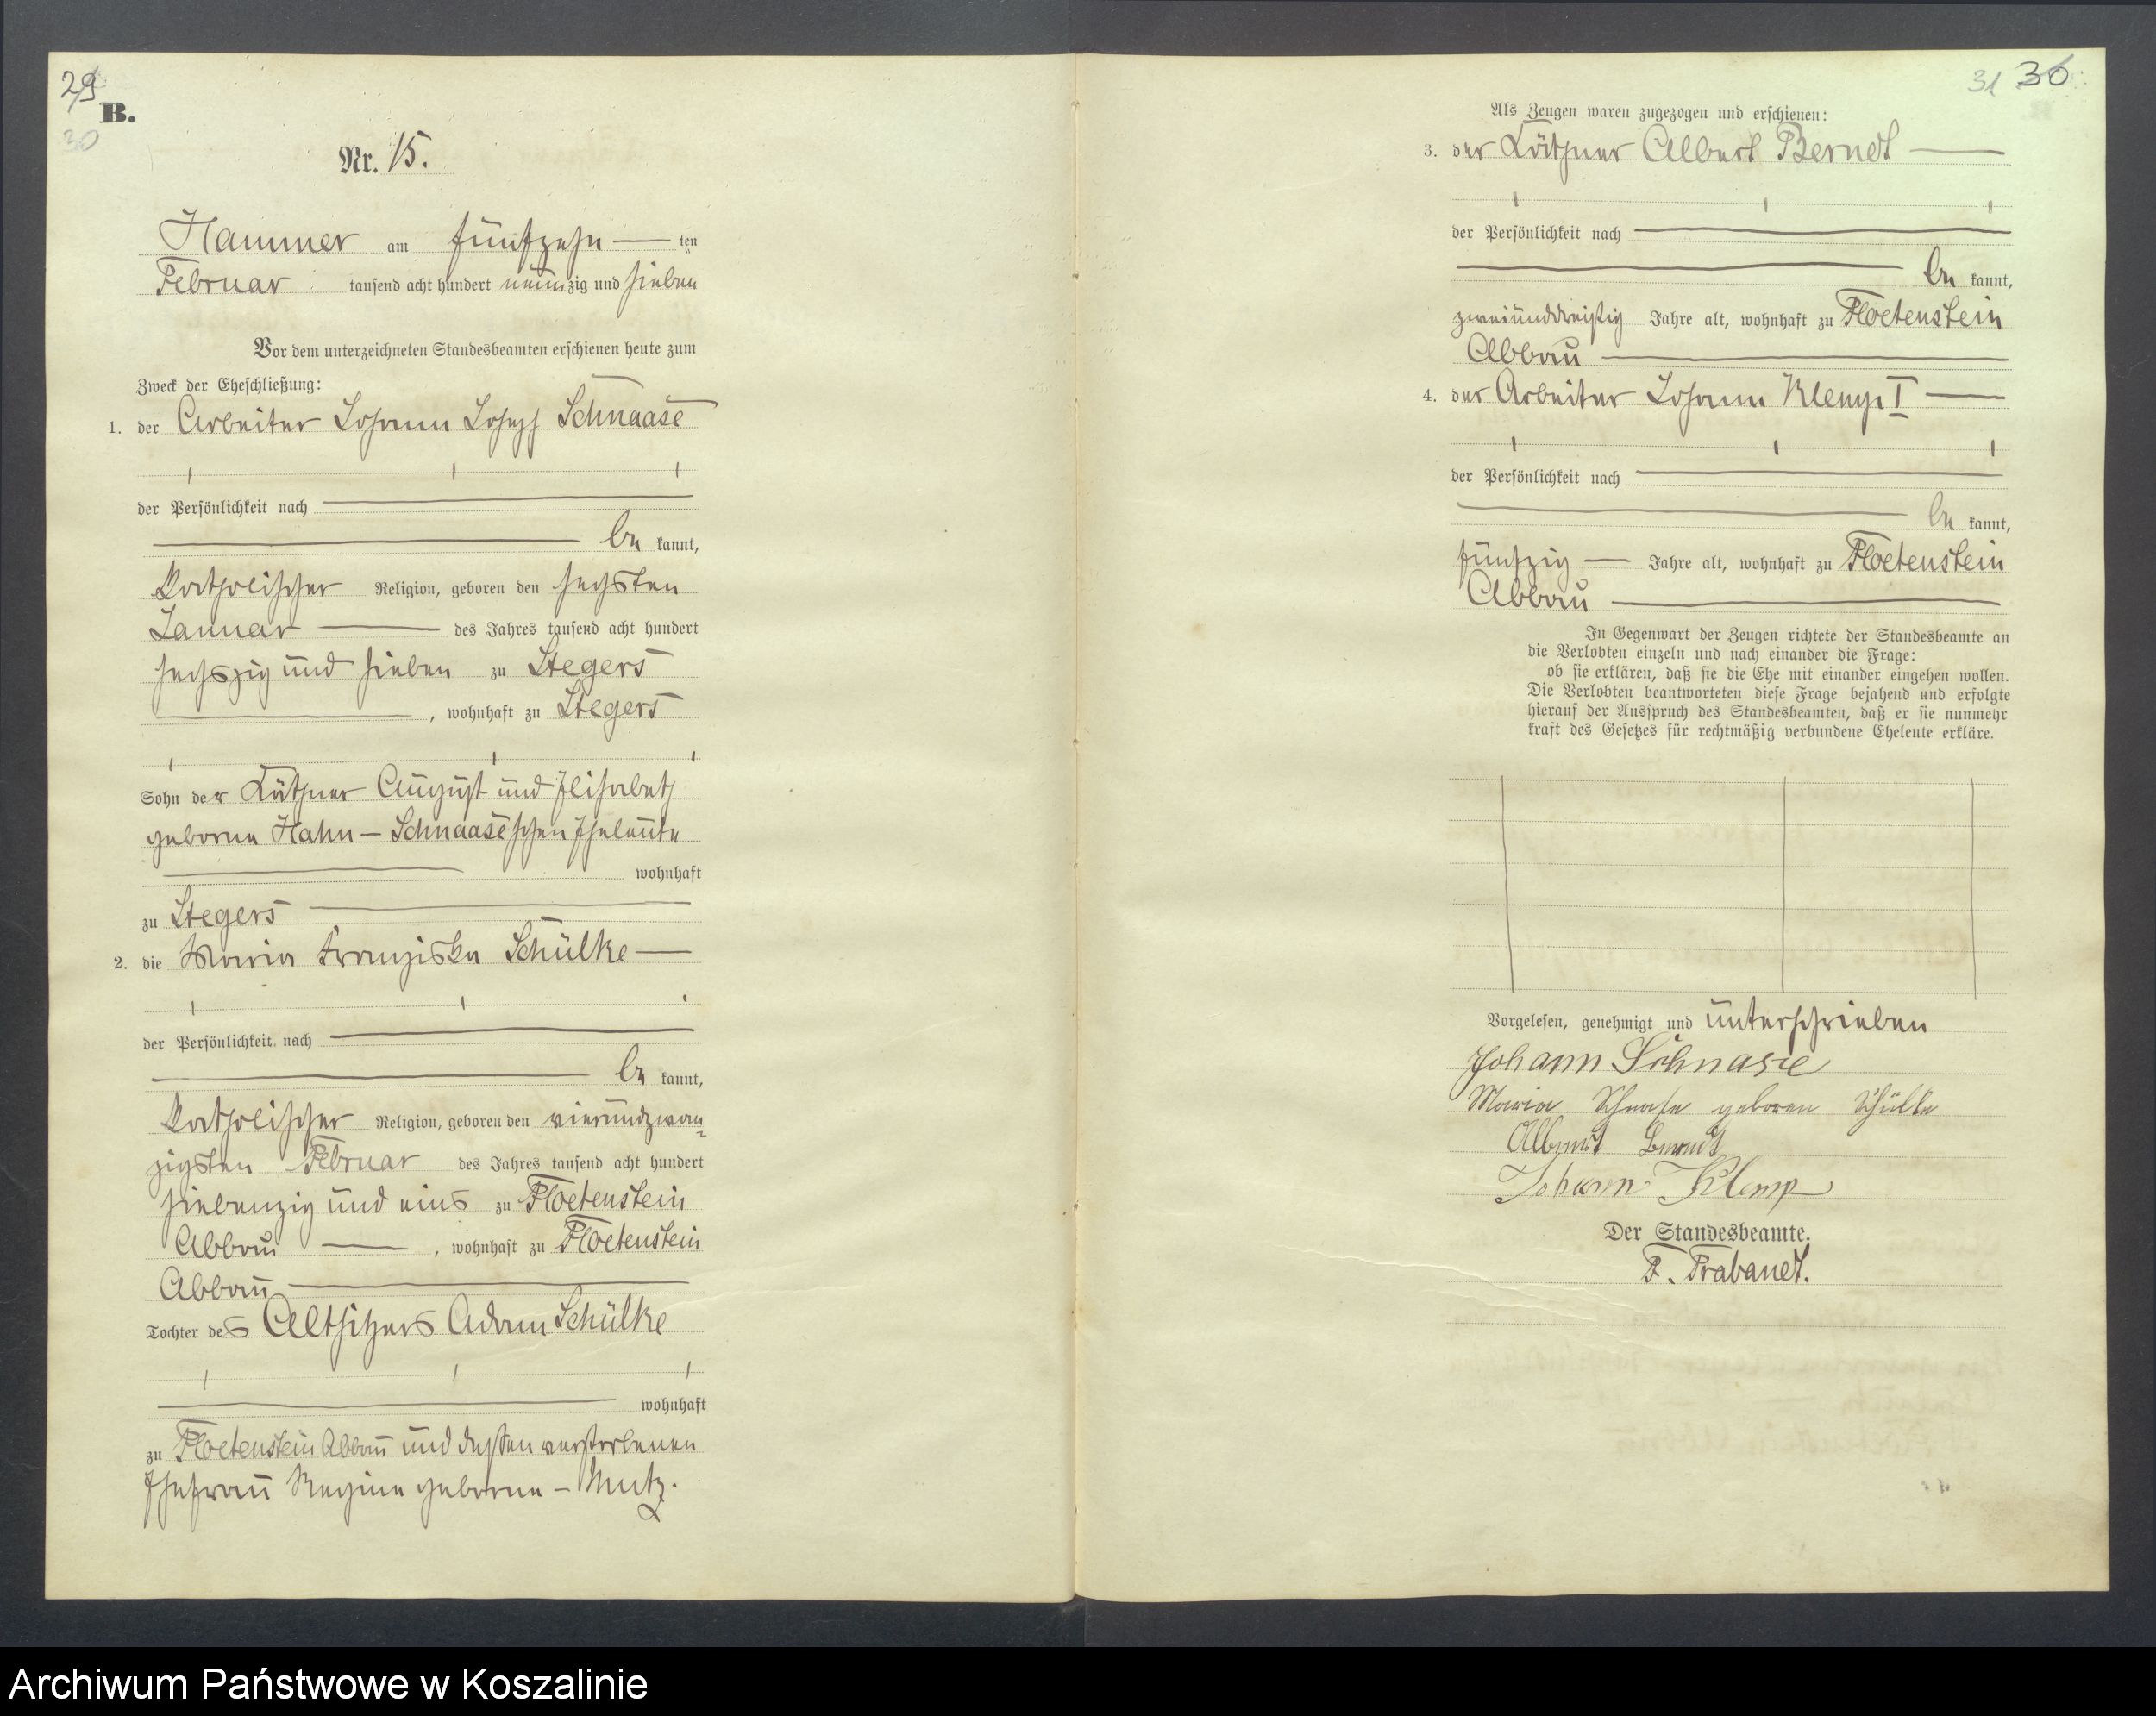 29
B.
30
Nr. 15.
Hammer am fünfzehn ten
Februar tausend acht hundert neunzig und sieben
Vor dem unterzeichneten Standesbeamten erschienen heute zum
Zweck der Eheschließung:
1. der Arbeiter Johann Joseph Schnaase
der Persönlichkeit nach
be kannt,
katholischer Religion, geboren den sechsten
Januar des Jahres tausend acht hundert
sechszig und sieben zu Stegers
, wohnhaft zu Stegers
Sohn der Käthner August und Elisabeth
geborne Hahn – Schnaaseschen Eheleute
wohnhaft
zu Stegers
2. die Maria Franziska Schülke
der Persönlichkeit nach
be kannt,
katholischer Religion, geboren den vierundzwan-
zigsten Februar des Jahres tausend acht hundert
siebenzig und eins zu Floetenstein
Abbau , wohnhaft zu Floetenstein
Abbau
Tochter des Altsitzers Adam Schülke
wohnhaft
zu Floetenstein Abbau und dessen verstorbenen
Ehefrau Regine geborne – Mutz.
31 30
Als Zeugen waren zugezogen und erschienen:
3. der Käthner Albert Berndt
der Persönlichkeit nach
be kannt,
zweiunddreißig Jahre alt, wohnhaft zu Floetenstein
Abbau
4. der Arbeiter Johann Klemp I
der Persönlichkeit nach
be kannt,
fünfzig Jahre alt, wohnhaft zu Floetenstein
Abbau
In Gegenwart der Zeugen richtete der Standesbeamte an
die Verlobten einzeln und nach einander die Frage:
ob sie erklären, daß sie die Ehe mit einander eingehen wollen.
Die Verlobten beantworteten diese Frage bejahend und erfolgte
hierauf der Ausspruch des Standesbeamten, daß er sie nunmehr
kraft des Gesetzes für rechtmäßig verbundene Eheleute erkläre.
Vorgelesen, genehmigt und unterschrieben
Johann Schnase
Maria Schnase geboren Schülke
Albert Berndt
Johann Klemp
Der Standesbeamte.
F. Trabandt.
Archiwum Państwowe w Koszalinie